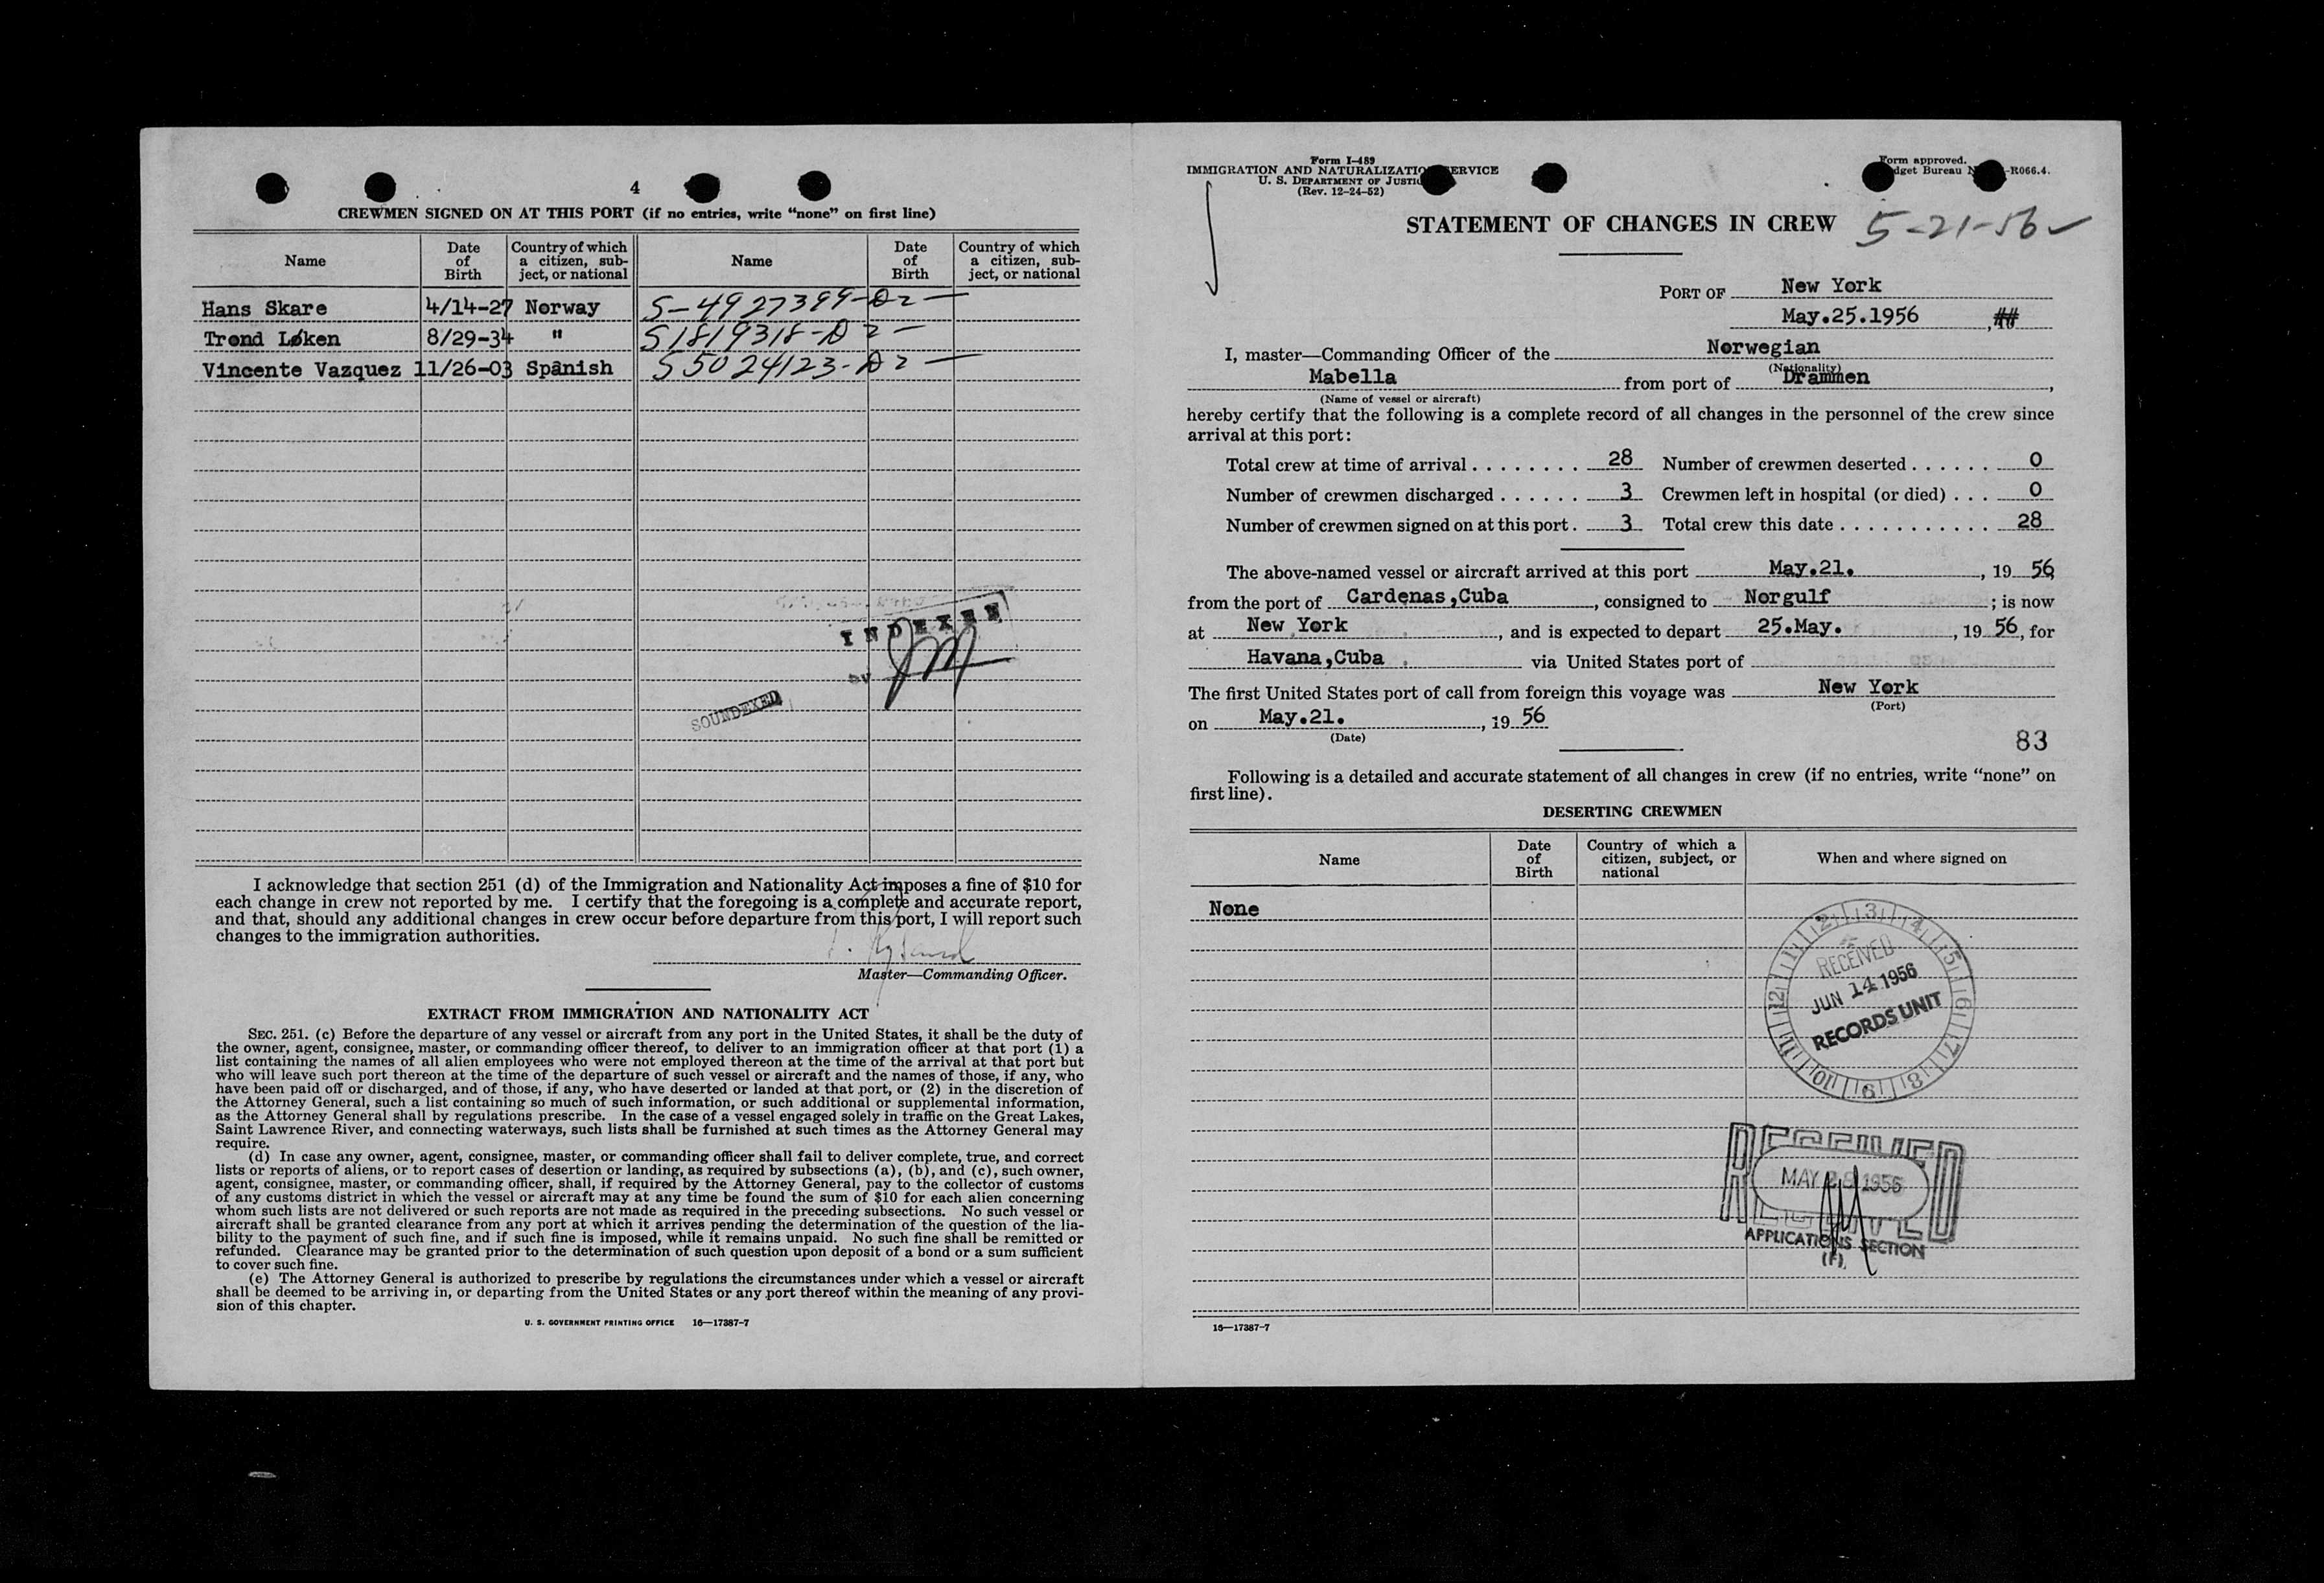 4
CREWMEN SIGNED ON AT THIS PORT (if no entries, write “none” on first line)
Name
Date of Birth
Country of which a citizen, subject, or national
Name
Date of Birth
Country of which a citizen, subject, or national
Hans Skare 4/14-27 Norway S-4927399-D2 —
Trond Løken 8/29-34 " S1819318-D2 —
Vincente Vazquez 11/26-03 Spanish S5024123-D2 —
INDEXED
BY JM
SOUNDEXED
I acknowledge that section 251 (d) of the Immigration and Nationality Act imposes a fine of $10 for
each change in crew not reported by me. I certify that the foregoing is a complete and accurate report,
and that, should any additional changes in crew occur before departure from this port, I will report such
changes to the immigration authorities.
Master—Commanding Officer.
EXTRACT FROM IMMIGRATION AND NATIONALITY ACT
SEC. 251. (c) Before the departure of any vessel or aircraft from any port in the United States, it shall be the duty of
the owner, agent, consignee, master, or commanding officer thereof, to deliver to an immigration officer at that port (1) a
list containing the names of all alien employees who were not employed thereon at the time of the arrival at that port but
who will leave such port thereon at the time of the departure of such vessel or aircraft and the names of those, if any, who
have been paid off or discharged, and of those, if any, who have deserted or landed at that port, or (2) in the discretion of
the Attorney General, such a list containing so much of such information, or such additional or supplemental information,
as the Attorney General shall by regulations prescribe. In the case of a vessel engaged solely in traffic on the Great Lakes,
Saint Lawrence River, and connecting waterways, such lists shall be furnished at such times as the Attorney General may
require.
(d) In case any owner, agent, consignee, master, or commanding officer shall fail to deliver complete, true, and correct
lists or reports of aliens, or to report cases of desertion or landing, as required by subsections (a), (b), and (c), such owner,
agent, consignee, master, or commanding officer, shall, if required by the Attorney General, pay to the collector of customs
of any customs district in which the vessel or aircraft may at any time be found the sum of $10 for each alien concerning
whom such lists are not delivered or such reports are not made as required in the preceding subsections. No such vessel or
aircraft shall be granted clearance from any port at which it arrives pending the determination of the question of the lia-
bility to the payment of such fine, and if such fine is imposed, while it remains unpaid. No such fine shall be remitted or
refunded. Clearance may be granted prior to the determination of such question upon deposit of a bond or a sum sufficient
to cover such fine.
(e) The Attorney General is authorized to prescribe by regulations the circumstances under which a vessel or aircraft
shall be deemed to be arriving in, or departing from the United States or any port thereof within the meaning of any provi-
sion of this chapter.
U. S. GOVERNMENT PRINTING OFFICE 16—17387-7
Form I-489
IMMIGRATION AND NATURALIZATIO ERVICE
U. S. DEPARTMENT OF JUSTIC
(Rev. 12-24-52)
Form approved.
dget Bureau N -R066.4.
STATEMENT OF CHANGES IN CREW 5-21-56
PORT OF New York
May.25.1956, ##
I, master—Commanding Officer of the Norwegian
(Nationality)
Mabella from port of Drammen,
(Name of vessel or aircraft)
hereby certify that the following is a complete record of all changes in the personnel of the crew since
arrival at this port:
Total crew at time of arrival 28 Number of crewmen deserted 0
Number of crewmen discharged 3 Crewmen left in hospital (or died) 0
Number of crewmen signed on at this port. 3 Total crew this date 28
The above-named vessel or aircraft arrived at this port May.21., 19 56
from the port of Cardenas,Cuba, consigned to Norgulf; is now
at New York, and is expected to depart 25.May., 19 56, for
Havana,Cuba via United States port of
The first United States port of call from foreign this voyage was New York
(Port)
on May.21., 19 56
(Date)
83
Following is a detailed and accurate statement of all changes in crew (if no entries, write “none” on
first line).
DESERTING CREWMEN
Name
Date of Birth
Country of which a citizen, subject, or national
When and where signed on
None
1 2 3 4 5 6 7 8 9 10 11 12
RECEIVED
JUN 14 1956
RECORDS UNIT
RECEIVED
MAY 28 1956
APPLICATIONS SECTION
(F)
16—17387-7